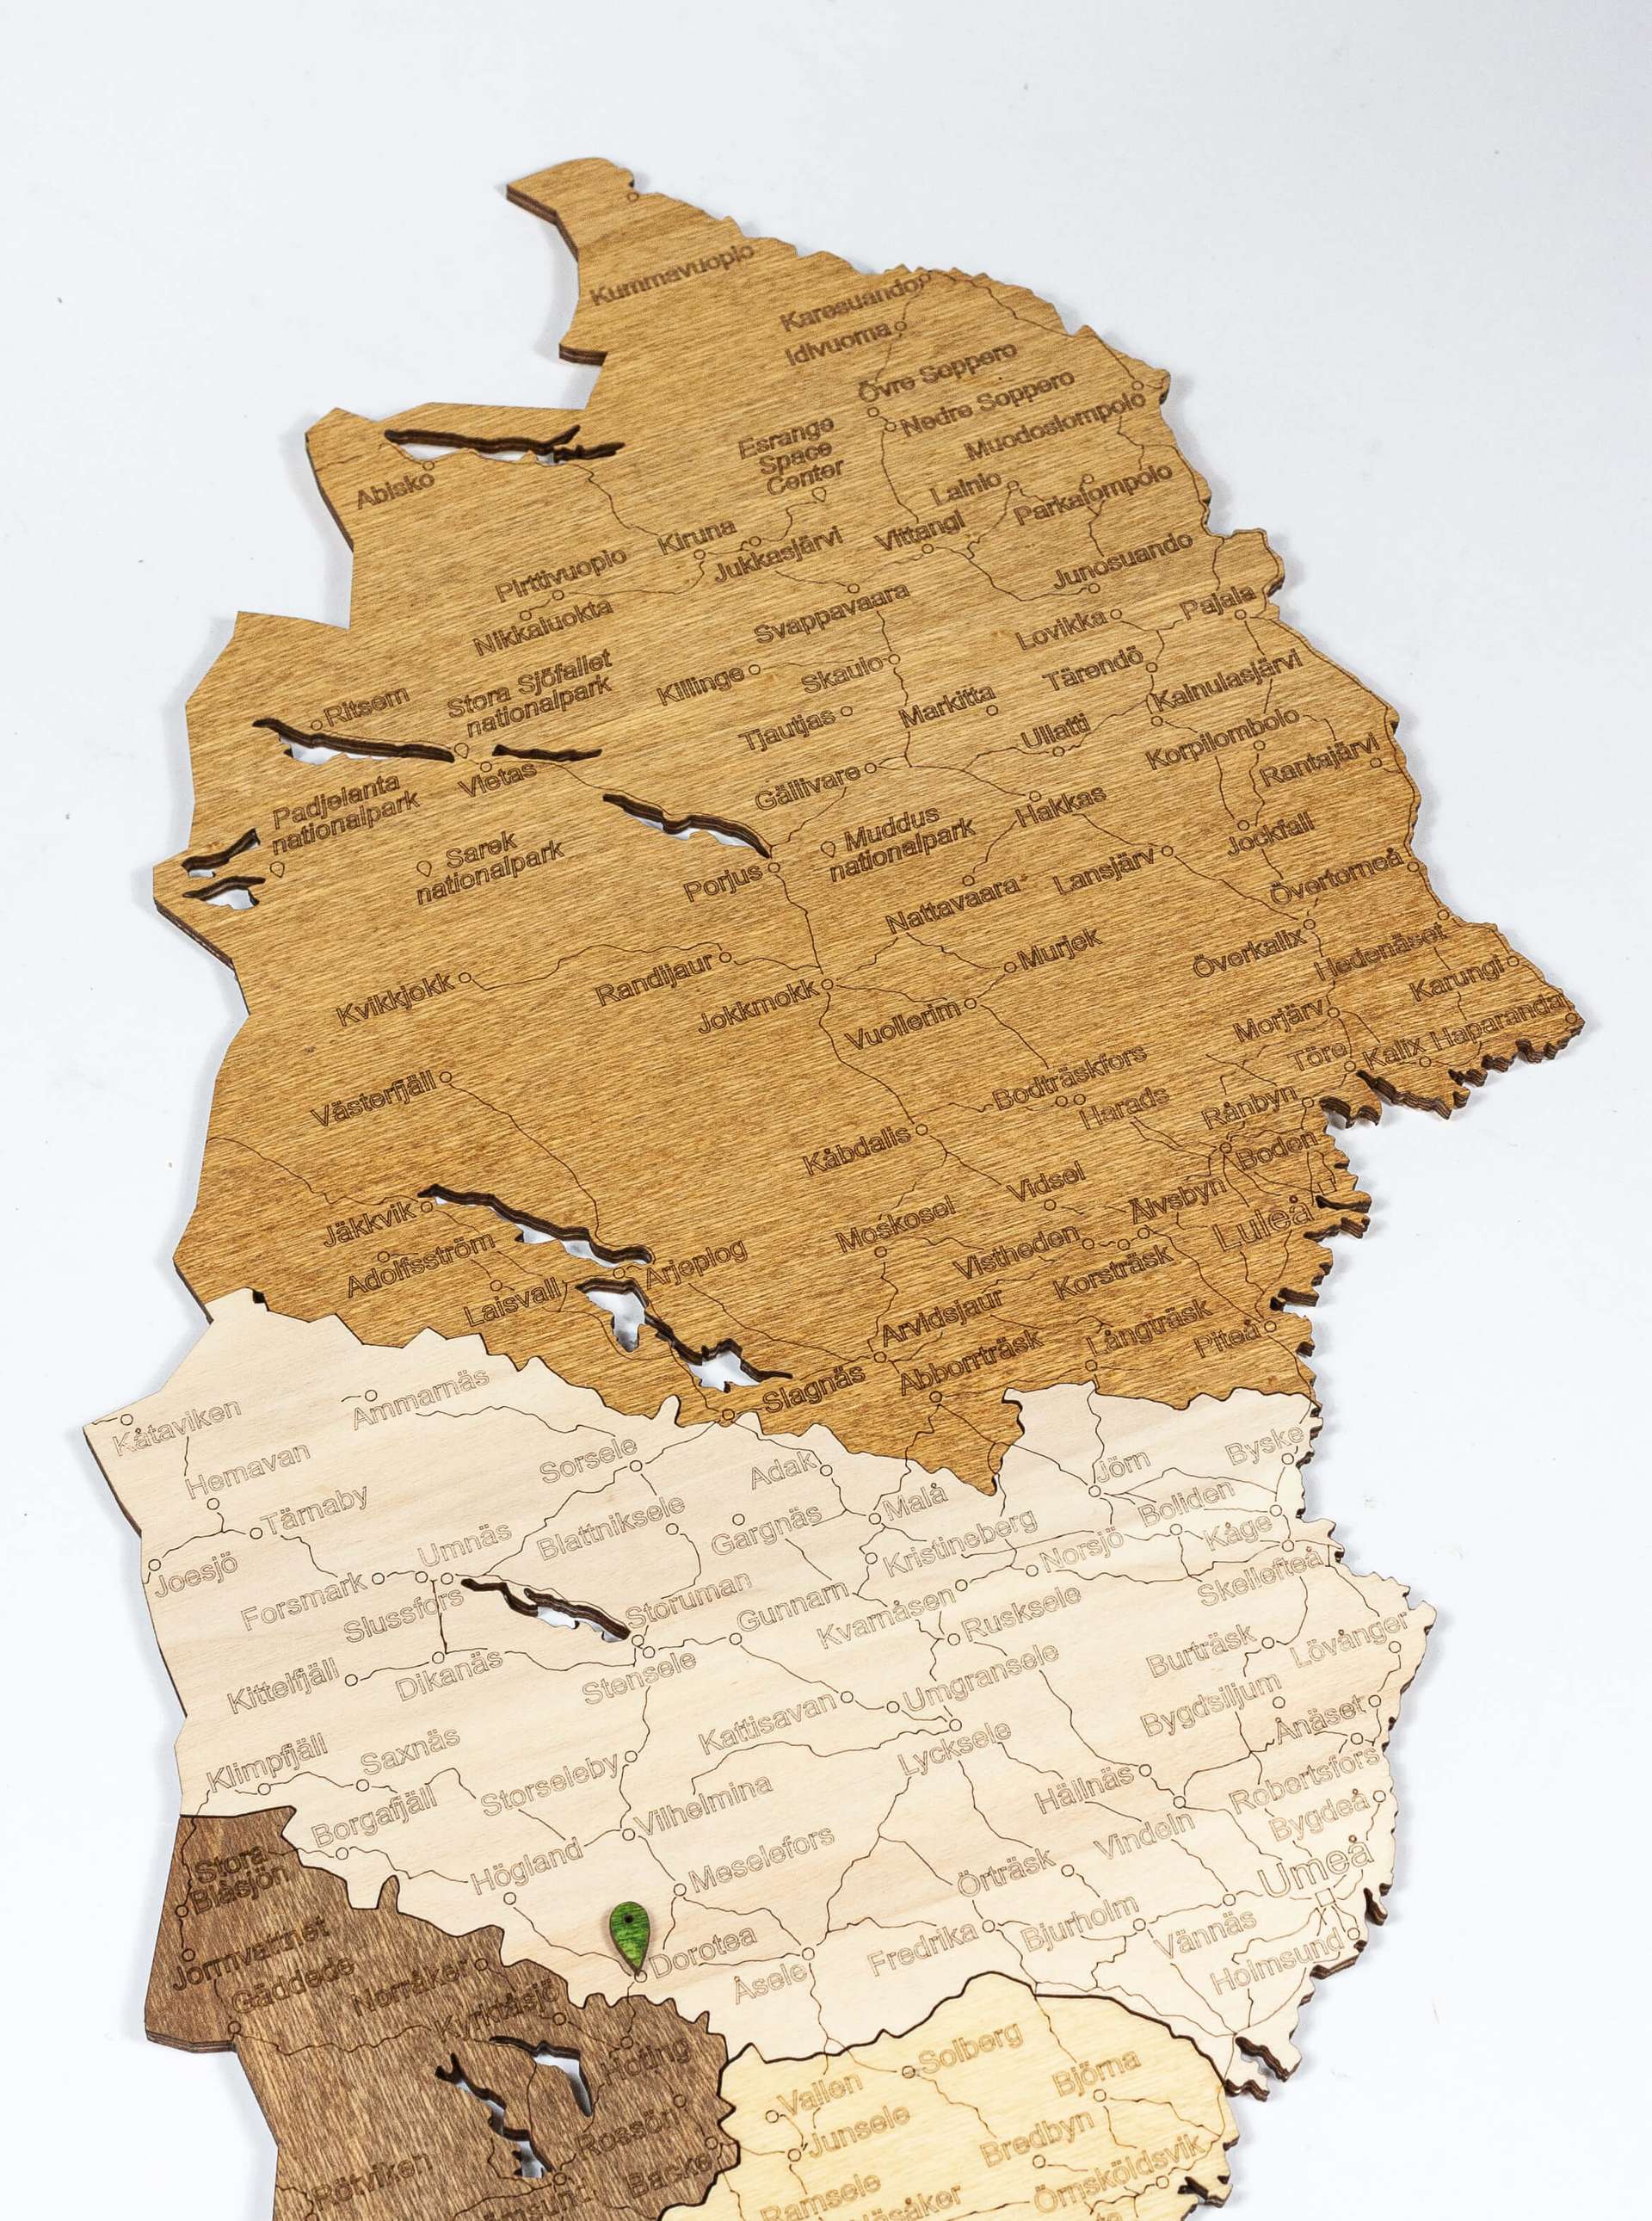 Kummavuopio
Karesuando
Idivuoma
Övre Soppero
Nedre Soppero
Muodoslompolo
Esrange
Space
Center
Abisko
Lainio
Parkalompolo
Kiruna
Jukkasjärvi
Vittangi
Junosuando
Pirttivuopio
Nikkaluokta
Svappavaara
Lovikka
Pajala
Stora Sjöfallet
nationalpark
Killinge
Skaulo
Tärendö
Kainulasjärvi
Ritsem
Tjautjas
Markitta
Ullatti
Korpilombolo
Rantajärvi
Vietas
Padjelanta
nationalpark
Gällivare
Hakkas
Jockfall
Sarek
nationalpark
Muddus
nationalpark
Porjus
Lansjärv
Övertorneå
Nattavaara
Murjek
Överkalix
Hedenäset
Kvikkjokk
Randijaur
Jokkmokk
Vuollerim
Karungi
Morjärv
Töre
Kalix
Haparanda
Västerfjäll
Bodträskfors
Harads
Rånbyn
Kåbdalis
Boden
Vidsel
Älvsbyn
Luleå
Jäkkvik
Adolfsström
Moskosel
Vistheden
Korsträsk
Laisvall
Arjeplog
Arvidsjaur
Långträsk
Piteå
Slagnäs
Abborrträsk
Kåtaviken
Ammarnäs
Hemavan
Sorsele
Adak
Jörn
Byske
Tärnaby
Malå
Boliden
Umnäs
Blattniksele
Gargnäs
Kristineberg
Norsjö
Kåge
Joesjö
Forsmark
Slussfors
Storuman
Gunnarn
Kvarnåsen
Rusksele
Skellefteå
Kittelfjäll
Dikanäs
Stensele
Umgransele
Burträsk
Lövånger
Kattisavan
Bygdsiljum
Ånäset
Klimpfjäll
Saxnäs
Lycksele
Storseleby
Hällnäs
Robertsfors
Borgafjäll
Vilhelmina
Vindeln
Bygdeå
Stora
Blåsjön
Högland
Meselefors
Örträsk
Umeå
Jormvattnet
Dorotea
Fredrika
Bjurholm
Vännäs
Gäddede
Norråker
Åsele
Holmsund
Kyrktåsjö
Hoting
Solberg
Vallen
Björna
Rossön
Junsele
Bredbyn
Rötviken
Backe
Ramsele
Örnsköldsvik